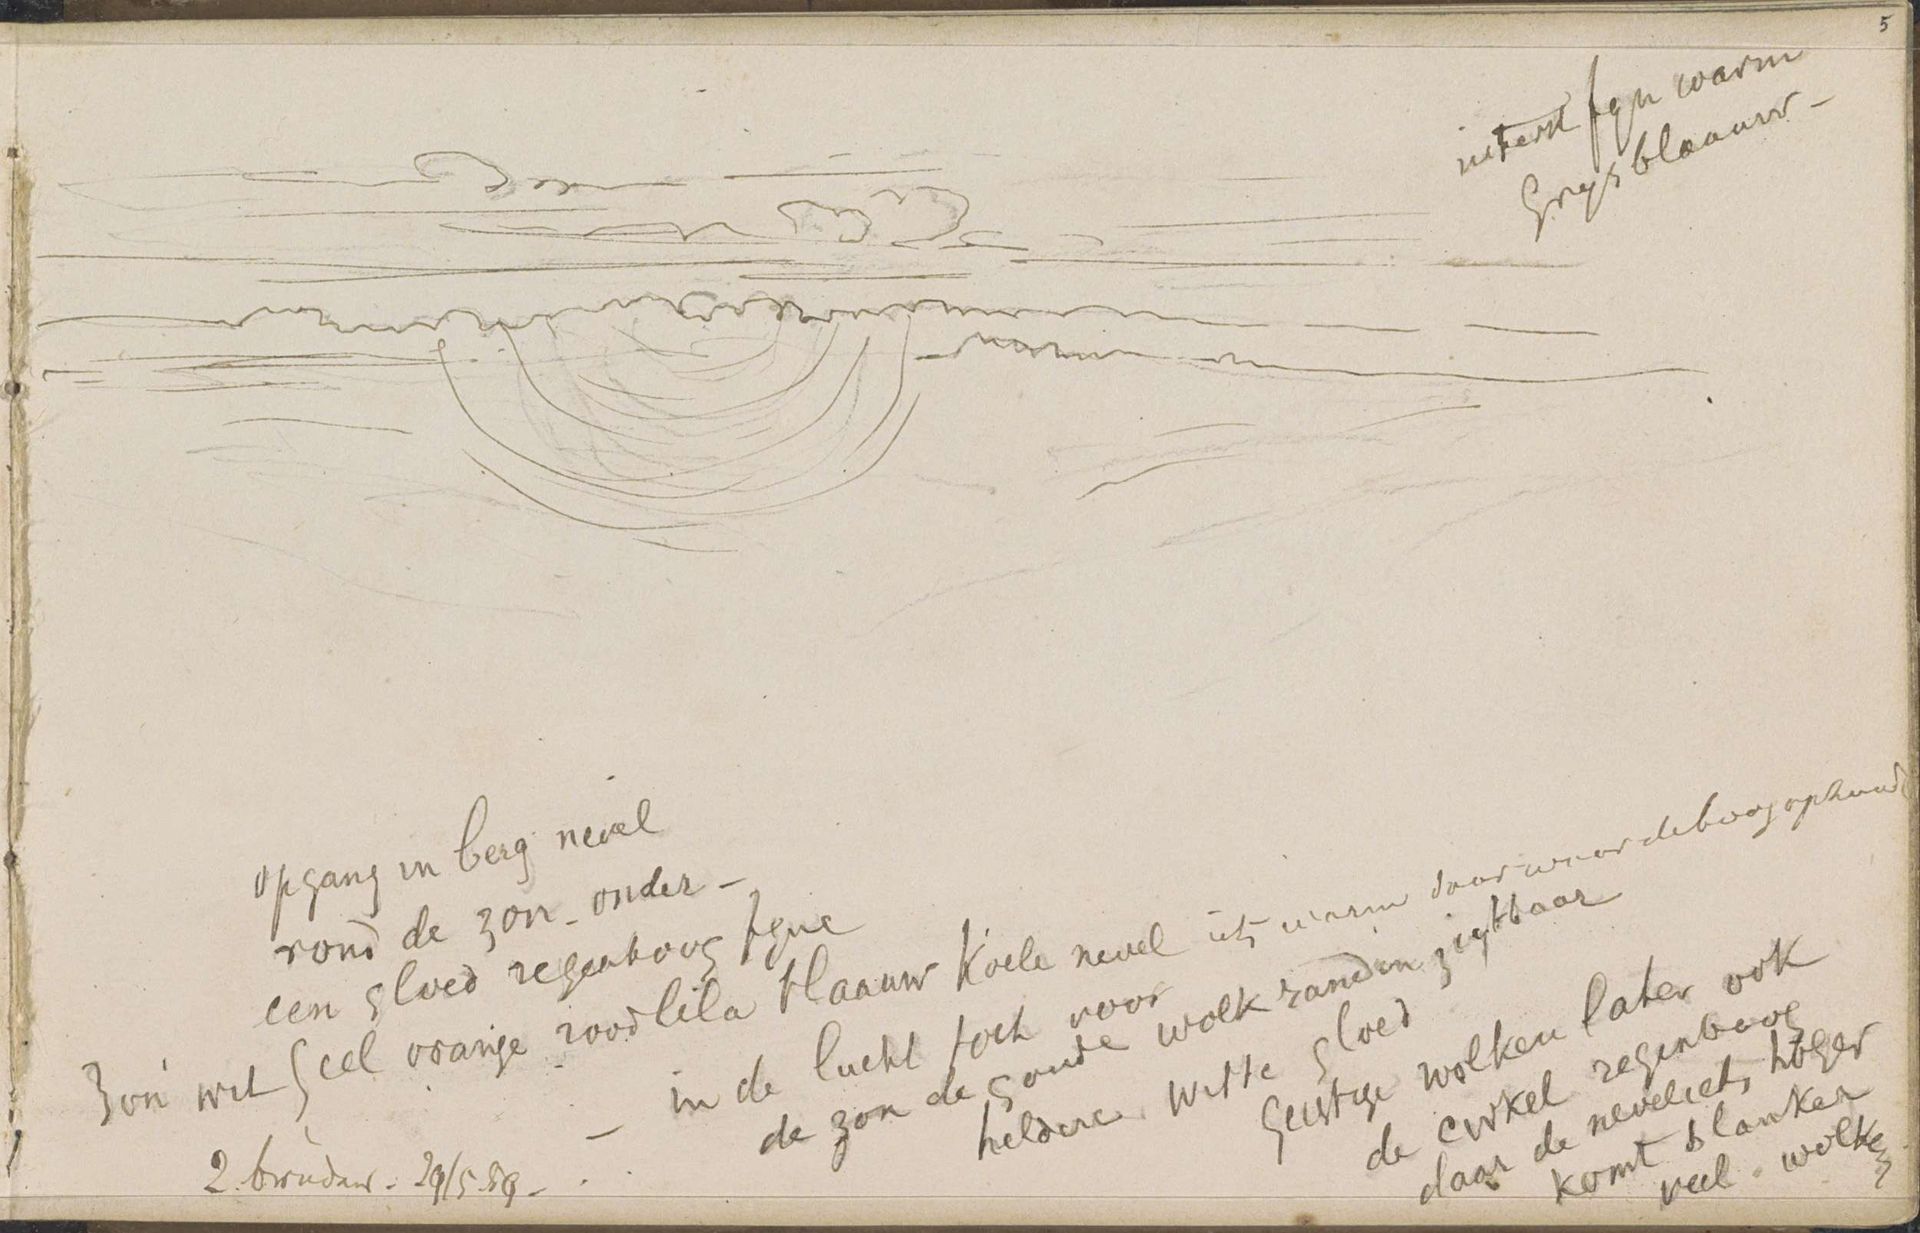 5
uiterst fyn warm
Grysblaauw -
opgang in berg nevel
rond de zon - onder -
een gloed regenboog fyne
Zon wit Geel oranje rood lila blaauw Koele nevel iets warm daar waar de boog ophoudt
- in de lucht toch voor
de zon de goude wolk randen zigtbaar
heldere witte gloed
Geestige wolken later ook
de cirkel regenboog
daar de nevel iets hoger
komt blanker
veel wolken
2 bruder - 29/5 89 -